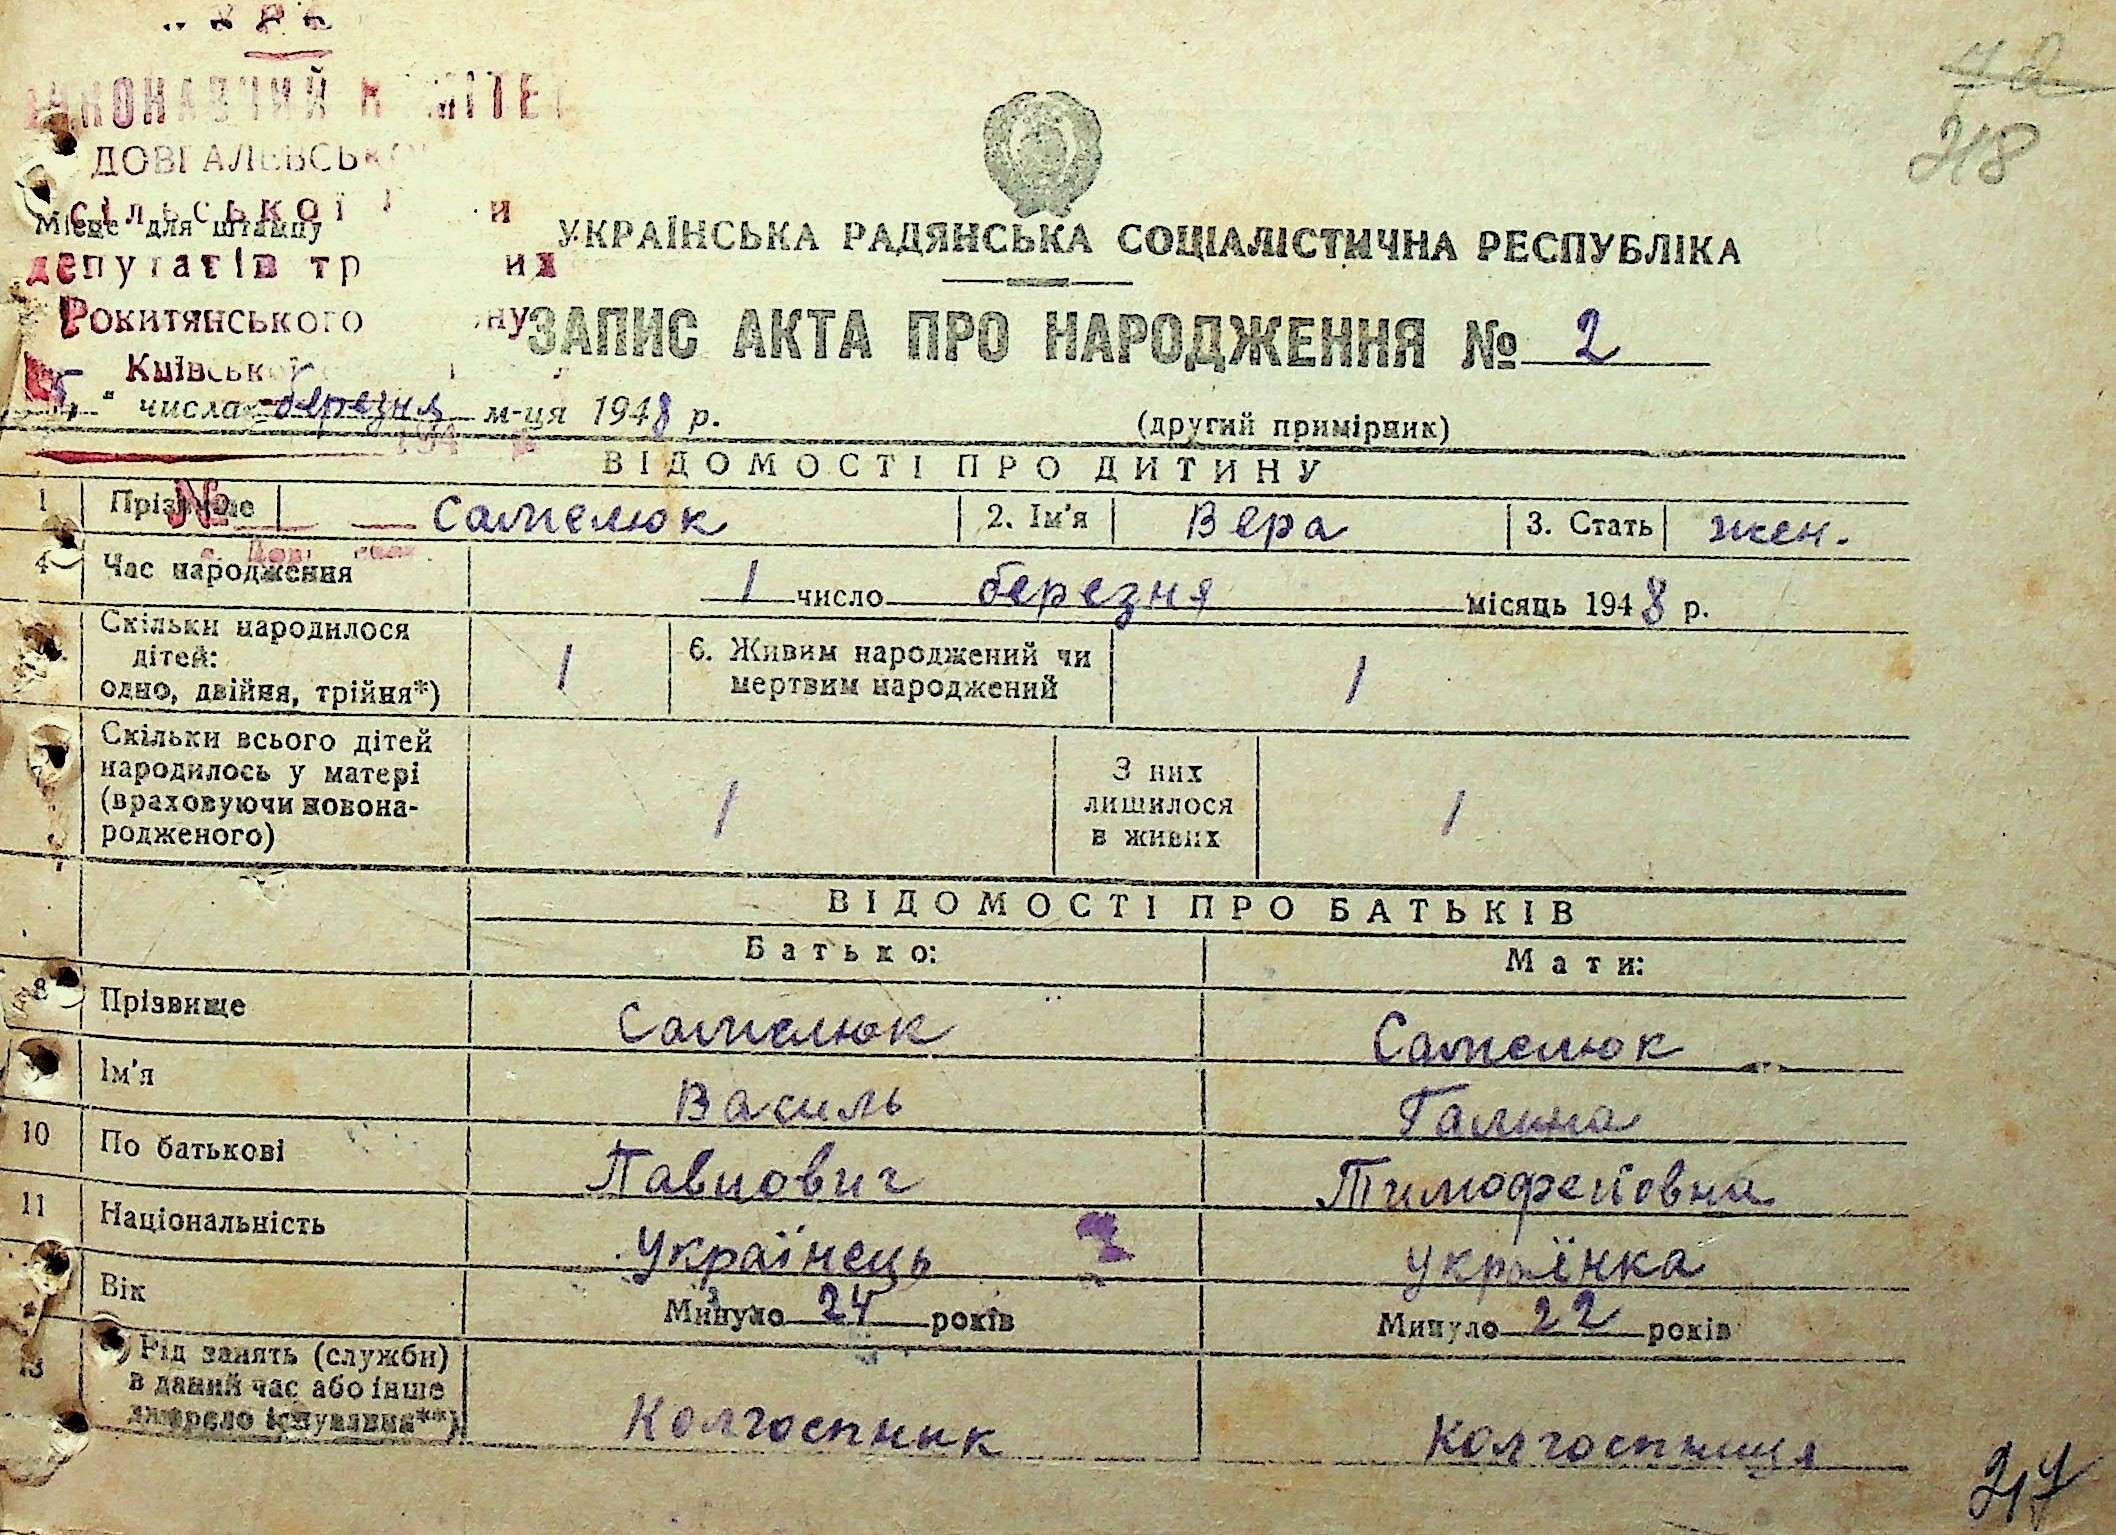 УРСР
ВИКОНАВЧИЙ КОМІТЕТ
ДОВГАЛЕВСЬКОЇ
сільської
Місце для штампу
депутатів
Рокитянського
Київської
218
УКРАЇНСЬКА РАДЯНСЬКА СОЦІАЛІСТИЧНА РЕСПУБЛІКА
ЗАПИС АКТА ПРО НАРОДЖЕННЯ № 2
„5“ числа березня м-ця 1948 р.
(другий примірник)
194
ВІДОМОСТІ ПРО ДИТИНУ
№
1 Прізвище Самелюк 2. Ім'я Вера 3. Стать жен.
4 Час народження 1 число березня місяць 1948 р.
Скільки народилося
дітей:
одно, двійня, трійня*) 1
6. Живим народжений чи
мертвим народжений 1
Скільки всього дітей
народилось у матері
(враховуючи новона-
родженого) 1
З них
лишилося
в живих 1
ВІДОМОСТІ ПРО БАТЬКІВ
Батько: Мати:
8 Прізвище Самелюк Самелюк
Ім'я Василь Галина
10 По батькові Павлович Тимофейовна
11 Національність Українець українка
Вік Минуло 24 років Минуло 22 років
13 Рід занять (служби)
в даний час або інше
джерело існування**) Колгоспник колгоспниця